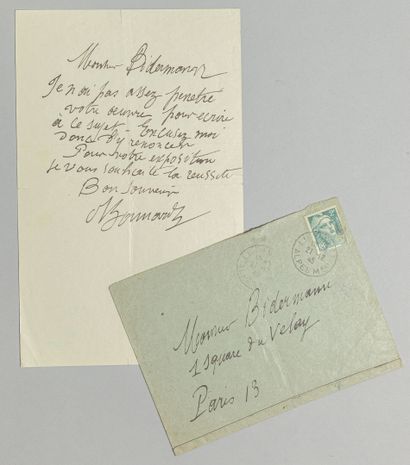 Monsieur Bidermann
Je n'ai pas assez penetré
votre œuvre pour ecrire
à ce sujet. Excusez moi
donc d'y renoncer
Pour votre exposition
je vous souhaite la reussite
Bon souvenir
PBonnard
ALPES MAR
Monsieur Bidermann
1 Square du Velay
Paris 13